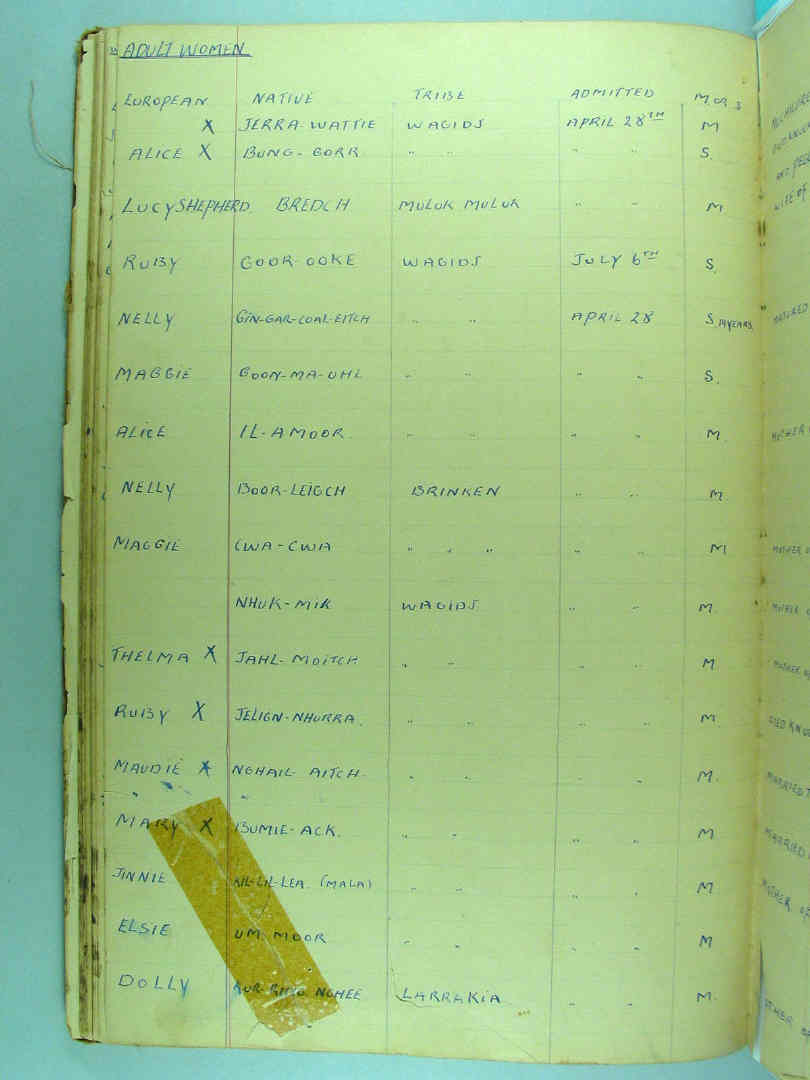 ADULT WOMEN
EUROPEAN NATIVE TRIBE ADMITTED M OR S
X JERRA-WATTIE WAGIDJ APRIL 28TH M
ALICE X BUNG-GORR " " " " S.
LUCY SHEPHERD. BREDCH MULUK MULUK " " M
RUBY GOOR-OOKE WAGIDJ JULY 6TH S.
NELLY GIN-GAR-COAL-EITCH " " APRIL 28 S. 14 YEARS.
MAGGIE GOON-MA-UHL " " " " S.
ALICE IL-AMOOR. " " " " M.
NELLY BOOR-LEIGCH BRINKEN " " M
MAGGIE CWA-CWA " " " " " M
NHUK-MIK WAGIDJ " " M.
THELMA X JAHL-MOITCH " " " " M
RUBY X JELIGN-NHURRA. " " " " M.
MAUDIE X NGHAIL-AITCH. " " " " M.
MARY X BUMIE-ACK. " " " " M
JINNIE (MALA) " " " " M
ELSIE UM. MOOR " " " " M
DOLLY NGHEE LARRAKIA " " M.
WIFE OF
MATURED
MOTHER
MOTHER O
MOTHER O
MOTHER OF
DIED
MARRIED T
MARRIED
MOTHER OF